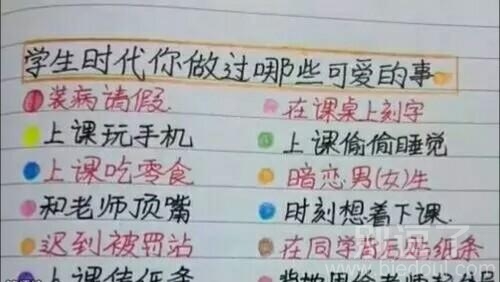 学生时代你做过哪些可爱的事
装病请假.
在课桌上刻字
上课玩手机
上课偷偷睡觉
上课吃零食
暗恋男(女)生
和老师顶嘴
时刻想着下课.
迟到被罚站
在同学背后贴纸条
上课传纸条